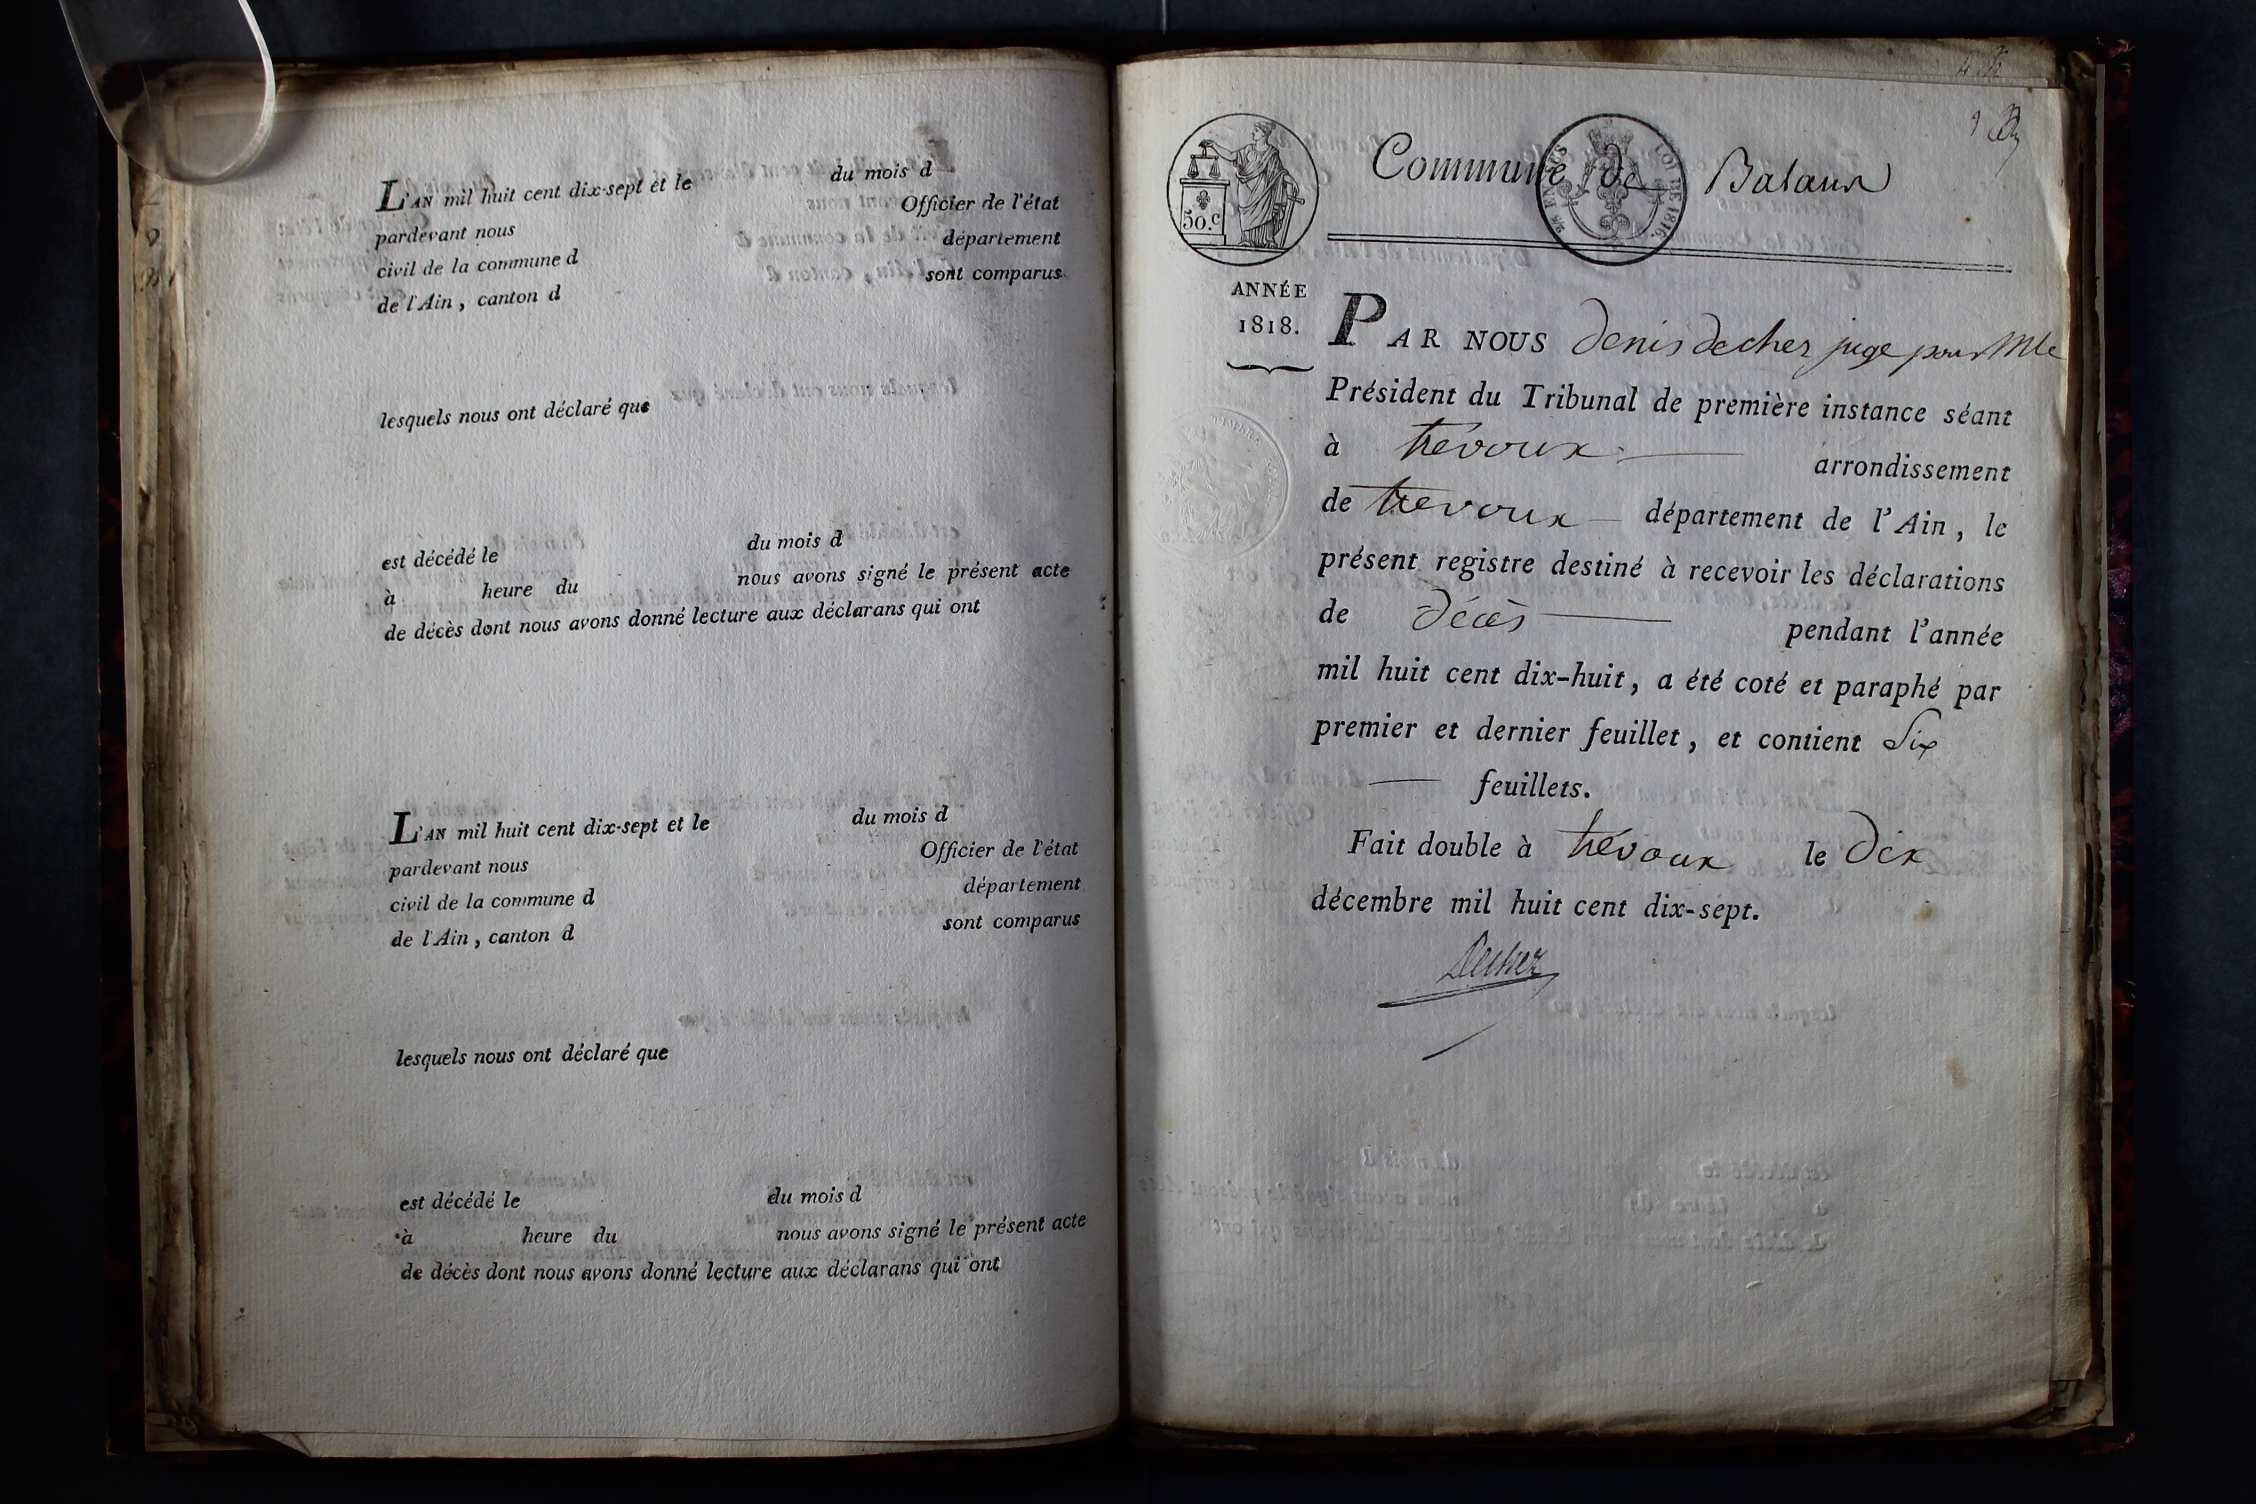 L'AN mil huit cent dix-sept et le du mois d
pardevant nous Officier de l'état
civil de la commune d département
de l'Ain, canton d sont comparus
lesquels nous ont déclaré que
est décédé le du mois d
à heure du nous avons signé le présent acte
de décès dont nous avons donné lecture aux déclarans qui ont
L'AN mil huit cent dix-sept et le du mois d
pardevant nous Officier de l'état
civil de la commune d département
de l'Ain, canton d sont comparus
lesquels nous ont déclaré que
est décédé le du mois d
à heure du nous avons signé le présent acte
de décès dont nous avons donné lecture aux déclarans qui ont
50.c
Commune de Balaux
LOI DE 1816.
ANNÉE
1818.
PAR NOUS denis decher juge pour Mr le
Président du Tribunal de première instance séant
à trévoux arrondissement
de trevoux département de l'Ain, le
présent registre destiné à recevoir les déclarations
de décès pendant l'année
mil huit cent dix-huit, a été coté et paraphé par
premier et dernier feuillet, et contient Six
feuillets.
Fait double à trévoux le dix
décembre mil huit cent dix-sept.
Decher